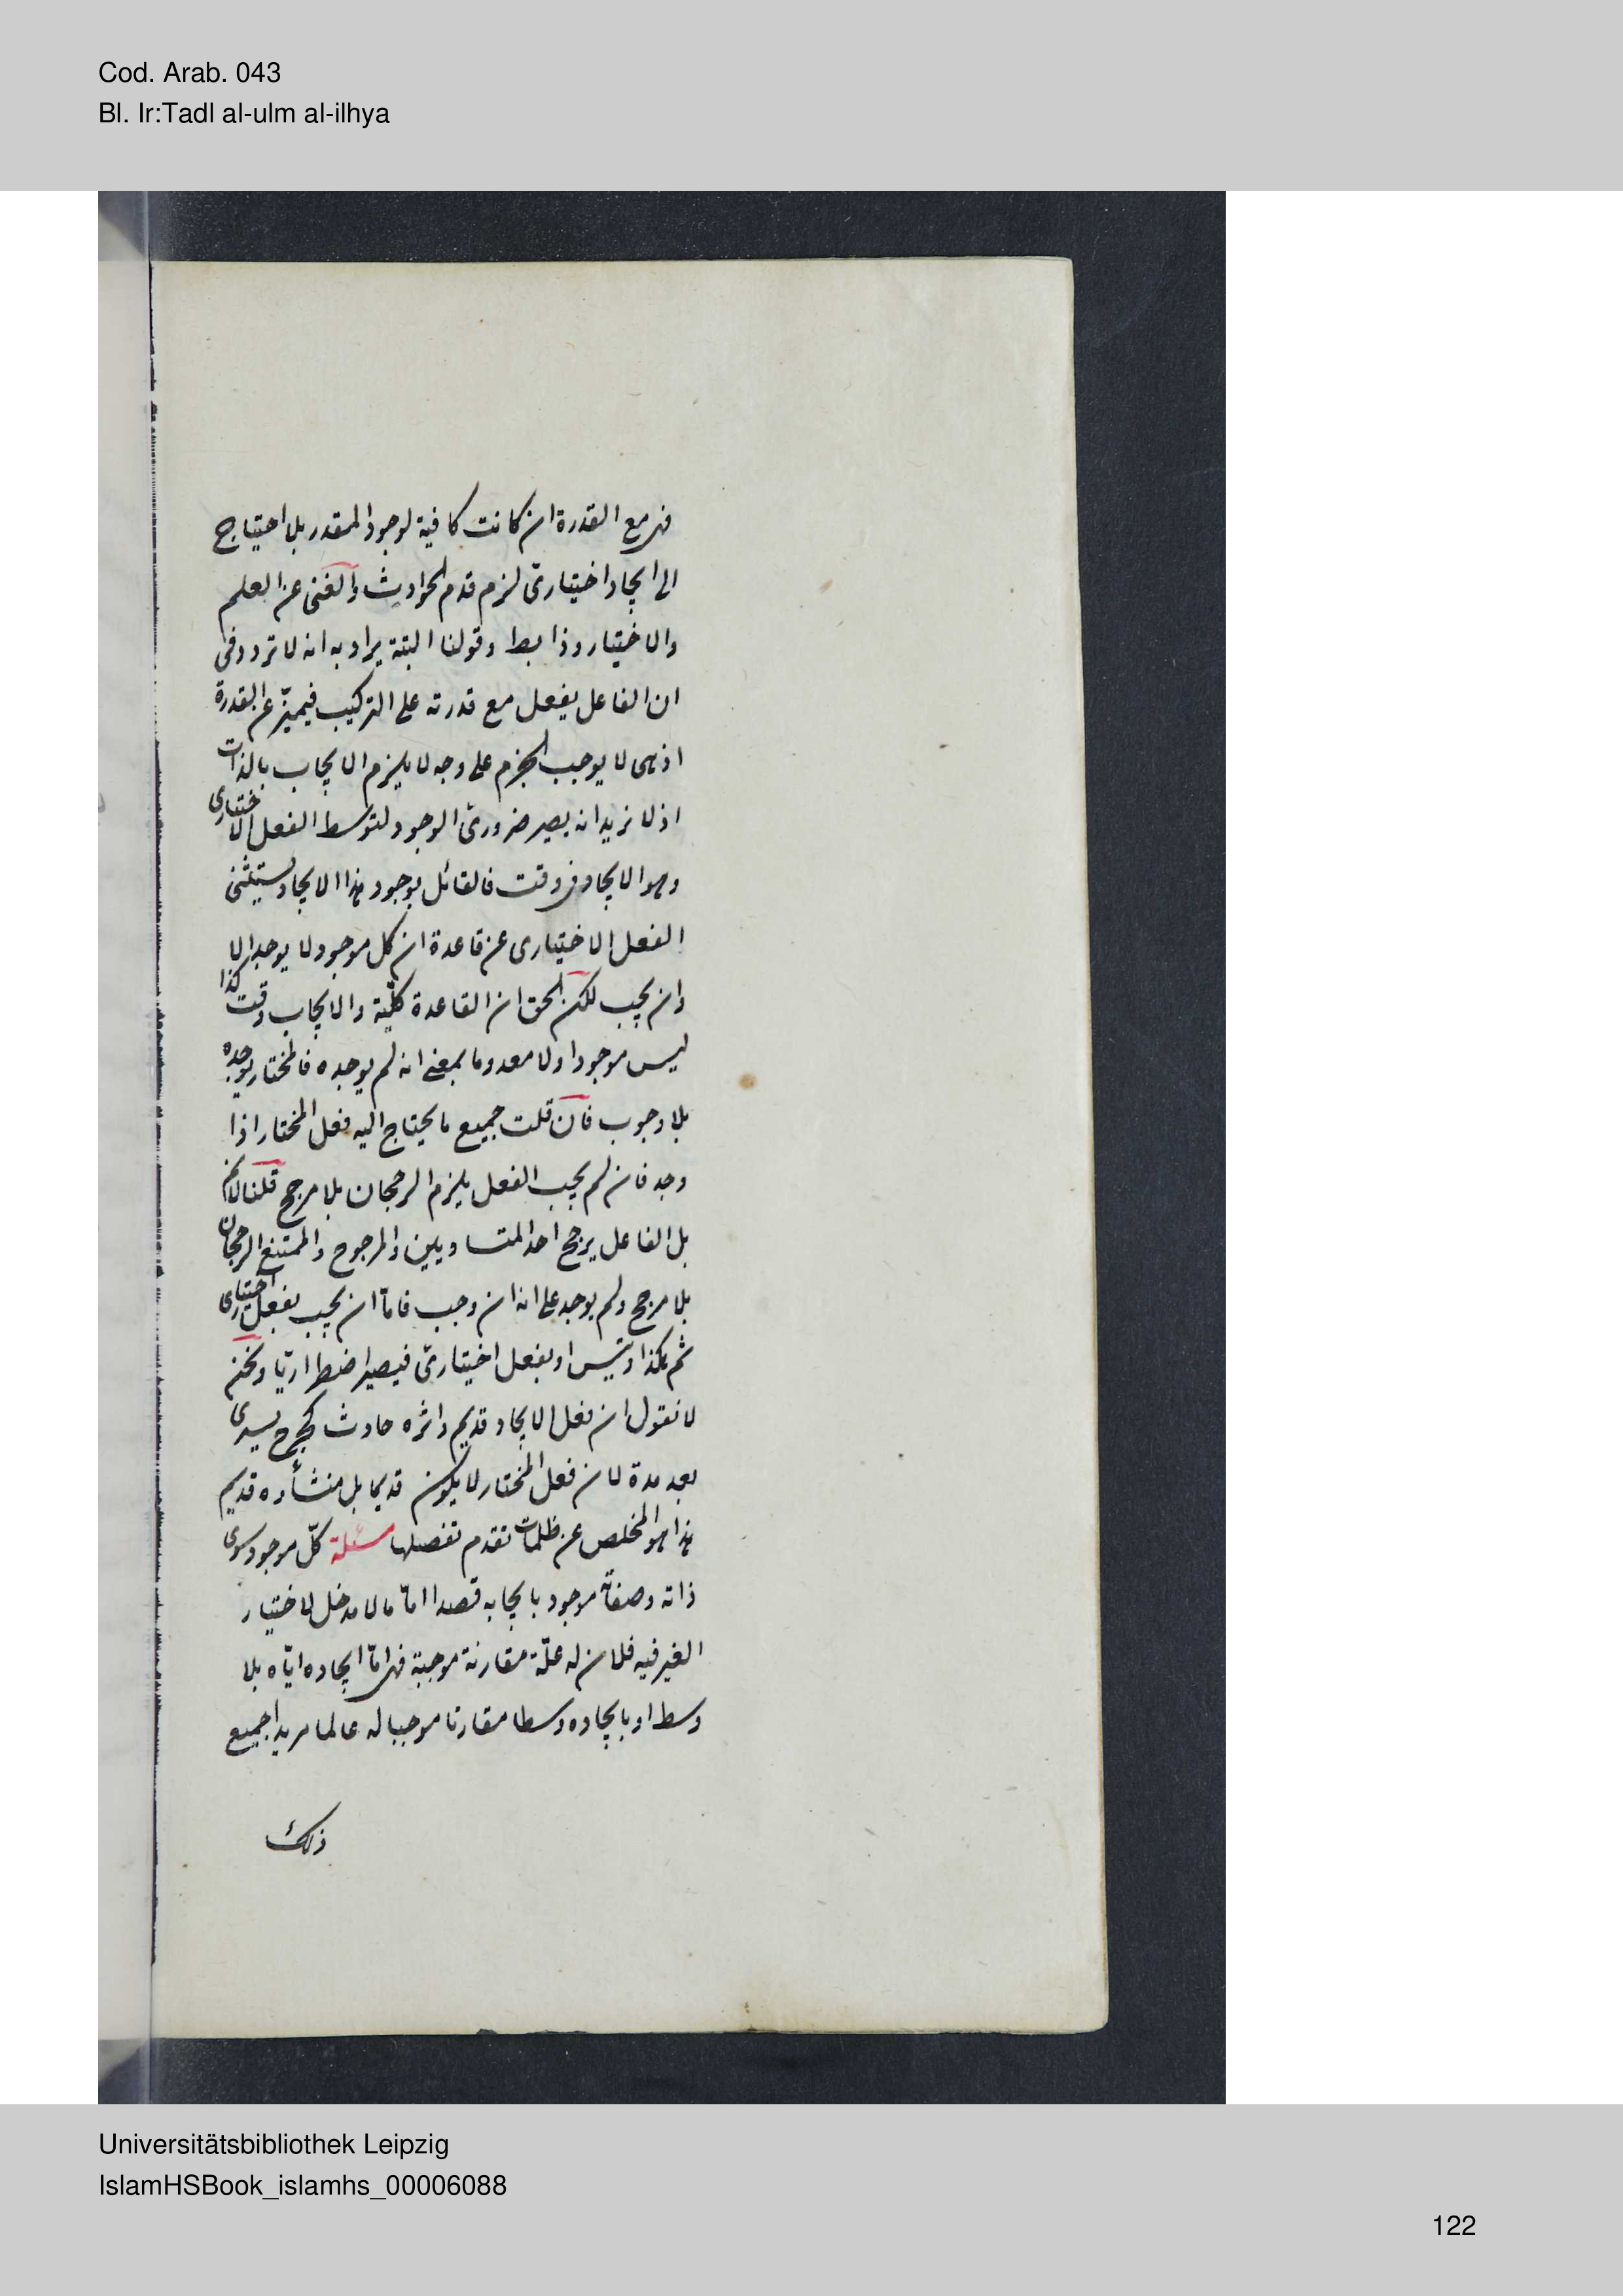 Cod. Arab. 043
Bl. Ir:Tadl al-ulm al-ilhya
فهى مع القدرة ان كانت كافية لوجود المقدر بلا احتياج
الى ايجاد اختيارىّ لزم قدم الحوادث والغنى عن العلم
والاختيار وذا بط وقولنا البتة يراد به انه لا تردد فى
ان الفاعل يفعل مع قدرته على التركيب فيميّز عن القدرة
اذ هى لا يوجب الجزم على وجه لا يلزم الايجاب بالذات
اذ لا نريد انه يصير ضرورىّ الوجود لتوسط الفعل الاختيارى
وهو الايجاد فى وقت فالقائل بوجود هذا الايجاد يستثنى
الفعل الاختيارى عن قاعدة ان كل موجود لا يوجد الا
وان يجب لكن الحق ان القاعدة كلّية والايجاب وقت كذا
ليس موجودا ولا معدوما بمعنى انه لم يوجده فالمختار يوجده
بلا وجوب فان قلت جميع ما يحتاج اليه فعل المختار اذا
وجد فان لم يجب الفعل يلزم الرجحان بلا مرجح قلنا لا نم
بل الفاعل يرجح احد المتساويين والمرجوح والممتنع الرجحان
بلا مرجح ولم يوجد على انه ان وجب فامّا ان يجب بفعل اختيارى
ثم هكذا ويتس او بفعل اختيارىّ فيصير اضطراريّا ونحن
لا نقول ان فعل الايجاد قديم واثره حادث كجرح يسرى
بعد مدة لان فعل المختار لا يكون قديما بل منشأوه قديم
هذا هو المخلص عن ظلمات تقدم تفصلها مسئلة كلّ موجود سوى
ذاته وصفاته موجود بايجابه قصدا امّا ما لا مدخل لاختيار
الغير فيه فلان له علّة مقارنة موجبة فهى امّا ايجاده ايّاه بلا
وسط او بايجاده وسطا مقارنا موجبا له عالما مريدا جميع
ذلك
Universitätsbibliothek Leipzig
IslamHSBook_islamhs_00006088
122